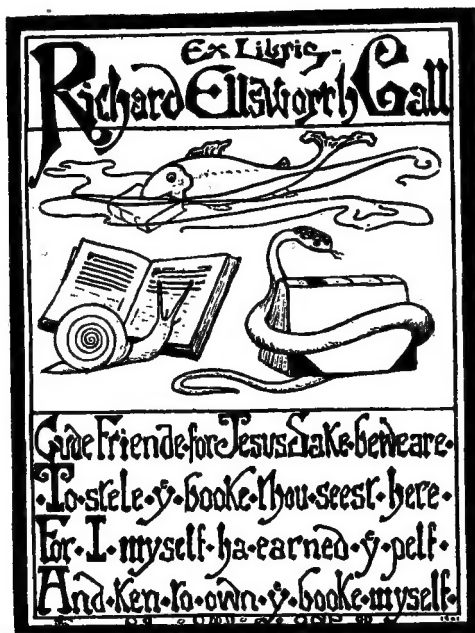 Ex Libris
Richard Ellsworth Call
Gude Friende·for Jesus Sake·beweare·
·To·stele·ÿ·booke·thou·seest·here·
For·I·myself·ha·earned·ÿ·pelf·
And·Ken·to·own·ÿ·booke·myself·